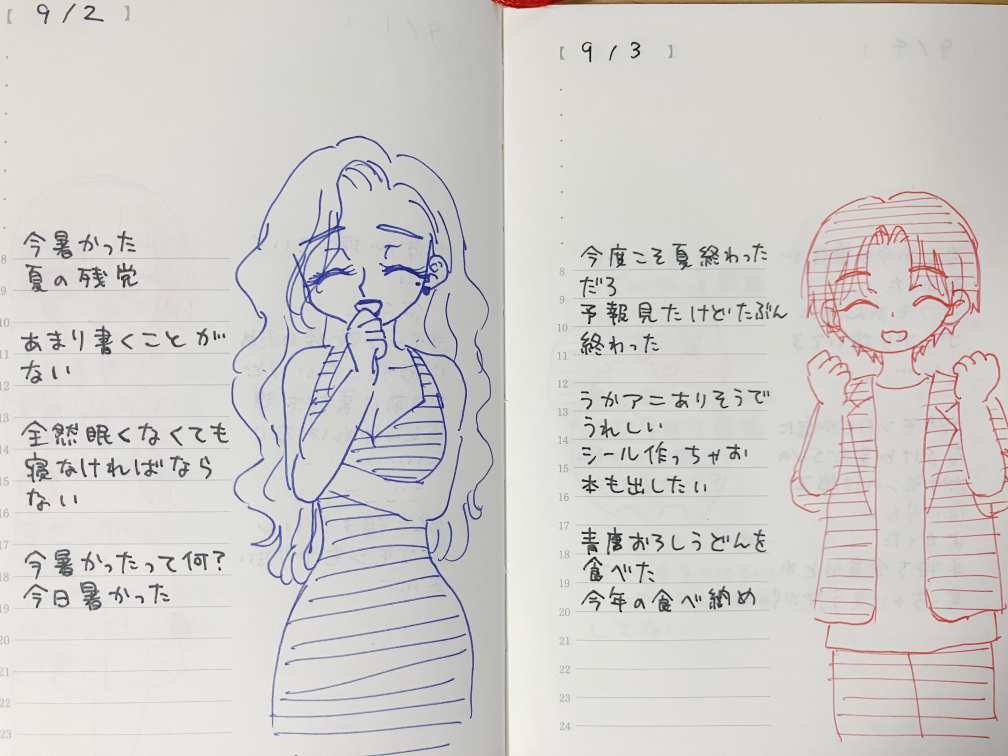 【 9/2 】
今暑かった
夏の残党
あまり書くことが
ない
全然眠くなくても
寝なければなら
ない
今暑かったって何?
今日暑かった
8
9
10
11
12
13
14
15
16
17
18
19
20
21
22
23
【 9/3 】
今度こそ夏終わった
だろ
予報見たけどたぶん
終わった
うかアニありそうで
うれしい
シール作っちゃお
本も出したい
青唐おろしうどんを
食べた
今年の食べ納め
8
9
10
11
12
13
14
15
16
17
18
19
20
21
22
23
24